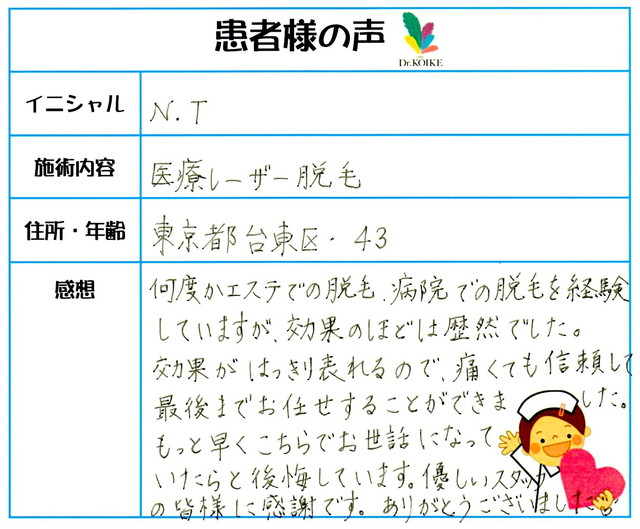 患者様の声
Dr.KOIKE
イニシャル
N.T
施術内容
医療レーザー脱毛
住所・年齢
東京都台東区・43
感想
何度かエステでの脱毛、病院での脱毛を経験
していますが、効果のほどは歴然でした。
効果がはっきり表れるので、痛くても信頼して
最後までお任せすることができました。
もっと早くこちらでお世話になって
いたらと後悔しています。優しいスタッフ
の皆様に感謝です。ありがとうございました